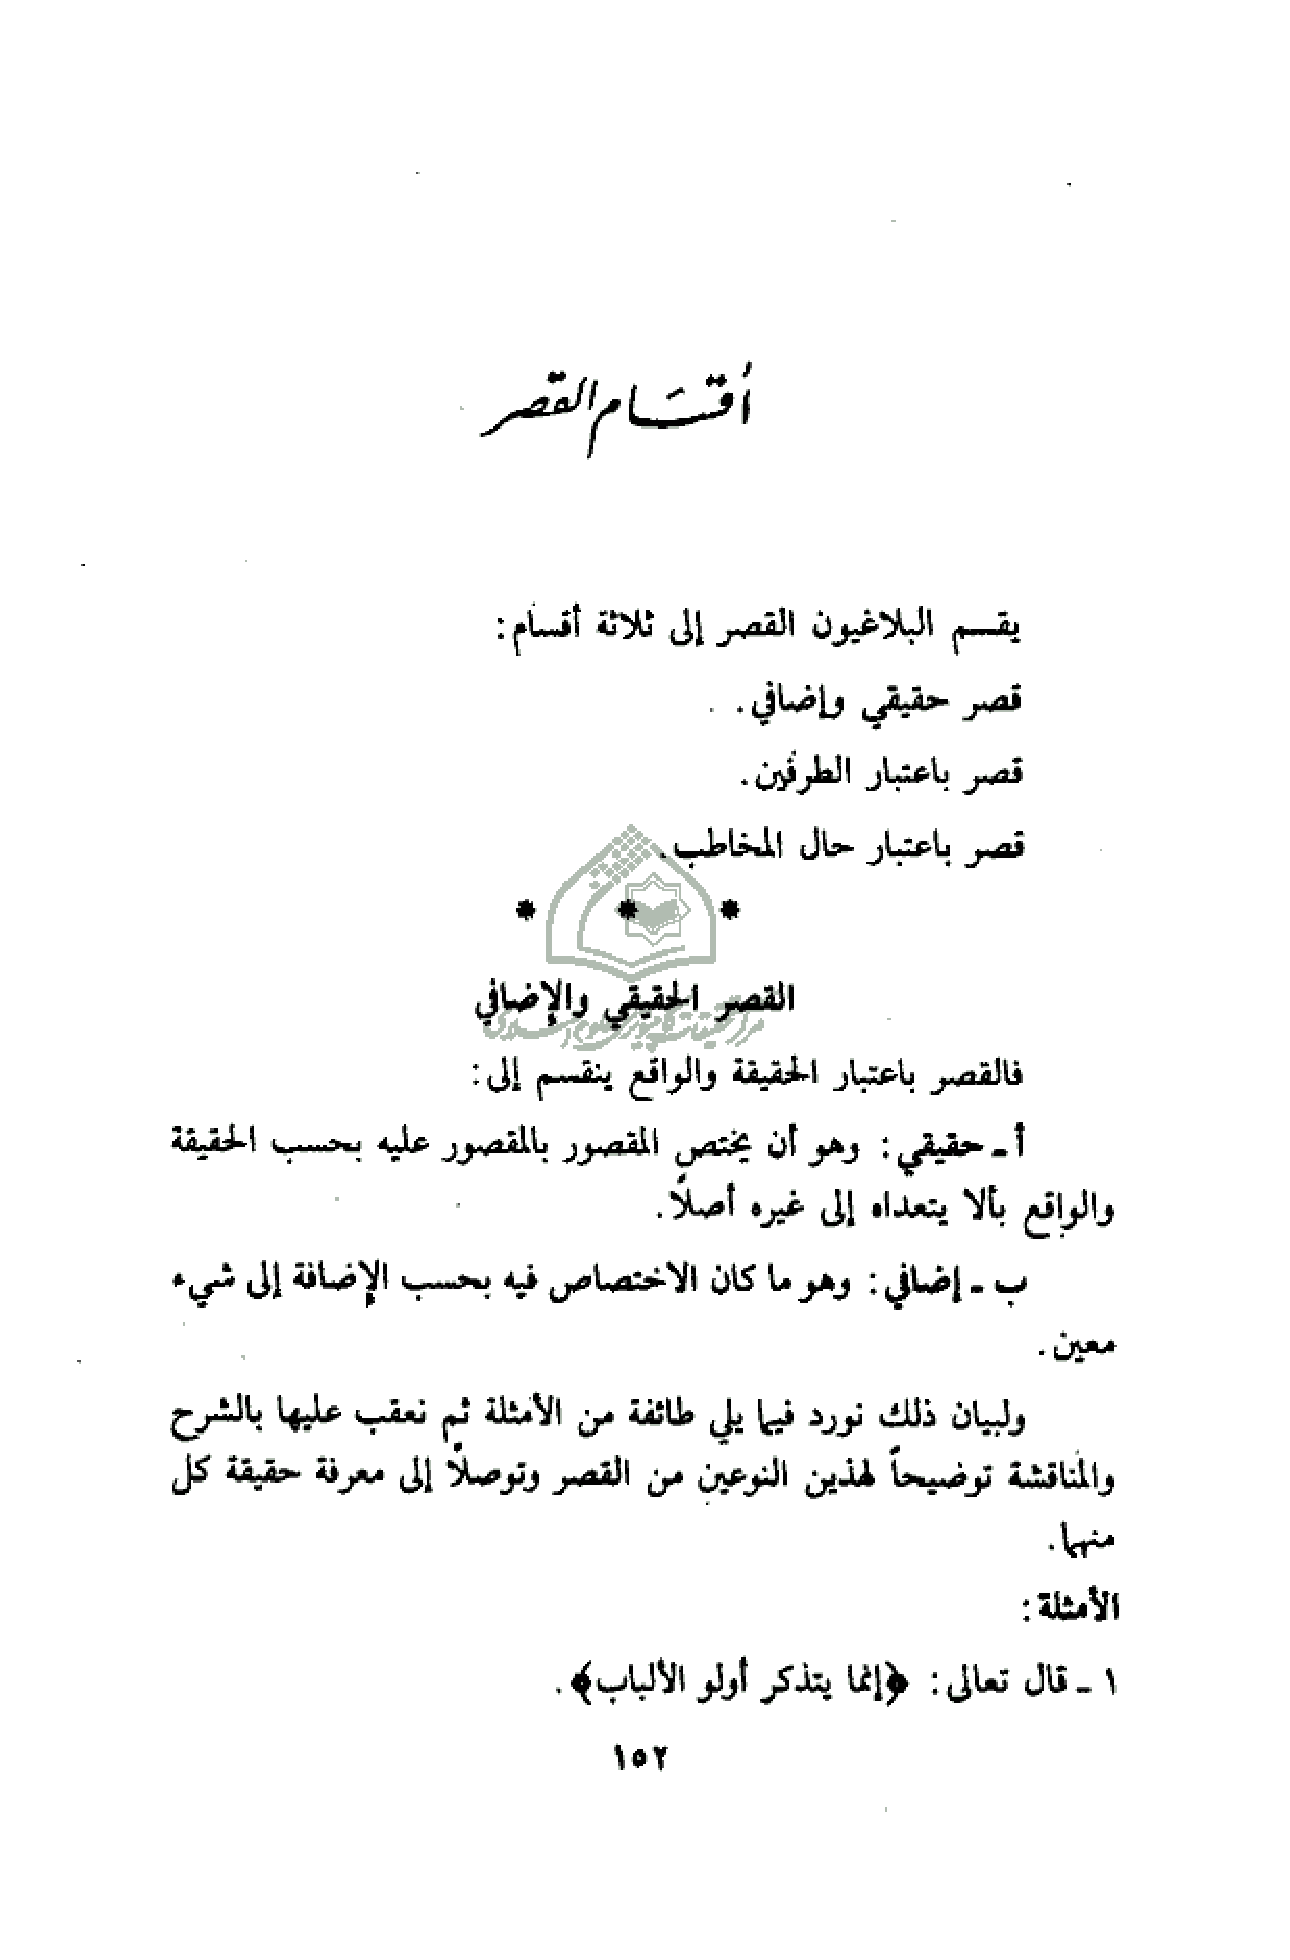 أقسَام القصر
يقسم البلاغيون القصر إلى ثلاثة أقسام:
قصر حقيقي وإضافي.
قصر باعتبار الطرفين.
قصر باعتبار حال المخاطب.
* * *
القصر الحقيقي والإضافي
فالقصر باعتبار الحقيقة والواقع ينقسم إلى:
أ ـ حقيقي: وهو أن يختص المقصور بالمقصور عليه بحسب الحقيقة
والواقع بألا يتعداه إلى غيره أصلاً.
ب ـ إضافي: وهو ما كان الاختصاص فيه بحسب الإضافة إلى شيء
معين.
ولبيان ذلك نورد فيما يلي طائفة من الأمثلة ثم نعقب عليها بالشرح
والمناقشة توضيحاً لهذين النوعين من القصر وتوصلاً إلى معرفة حقيقة كل
منهما.
الأمثلة:
١ ـ قال تعالى: ﴿إنما يتذكر أولو الألباب﴾.
١٥٢